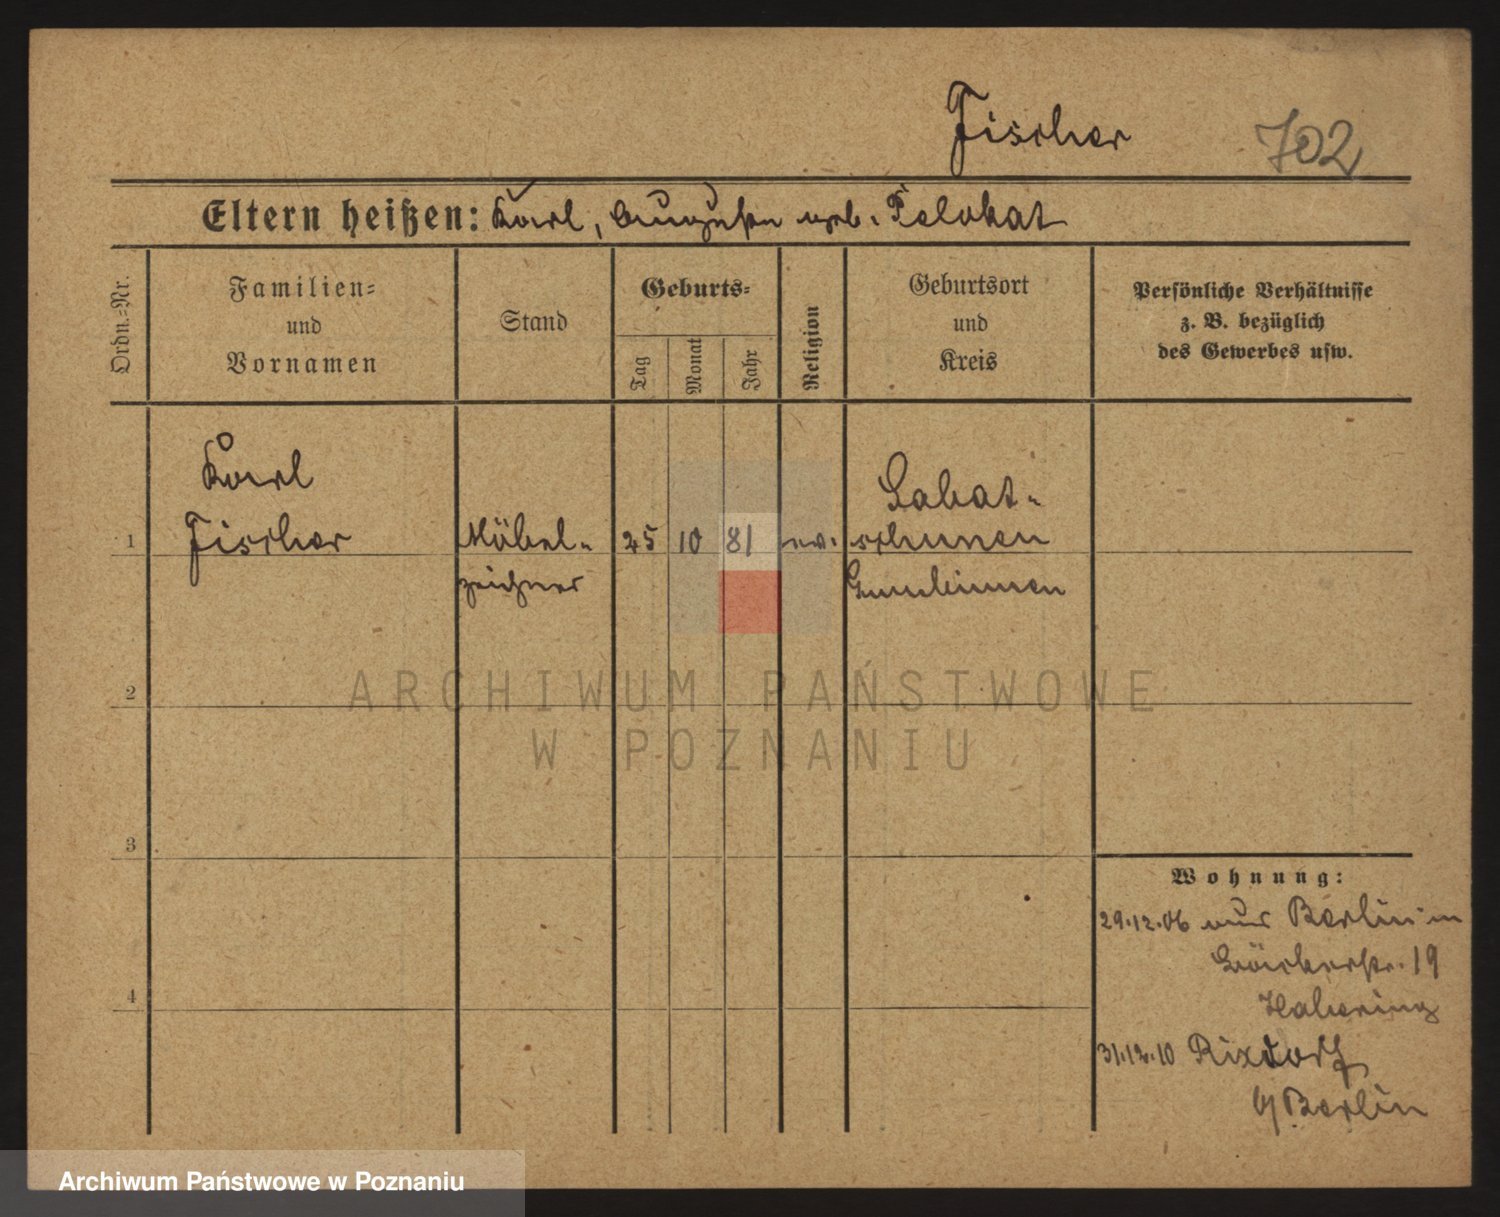 Fischer 702
Eltern heißen: Karl, Auguste geb. Pelokat
Ordn.-Nr.
Familien-
und
Vornamen
Stand
Geburts-
Tag
Monat
Jahr
Religion
Geburtsort
und
Kreis
Persönliche Verhältnisse
z. B. bezüglich
des Gewerbes usw.
Karl
1 Fischer Möbel- 25 10 81 ev. schunen
zeichner Gumbinnen
2
3
4
Wohnung:
29.12.06 aus Berlin in
19
31.12.10 Rixdorf
b/Berlin
ARCHIWUM PAŃSTWOWE
W POZNANIU
Archiwum Państwowe w Poznaniu